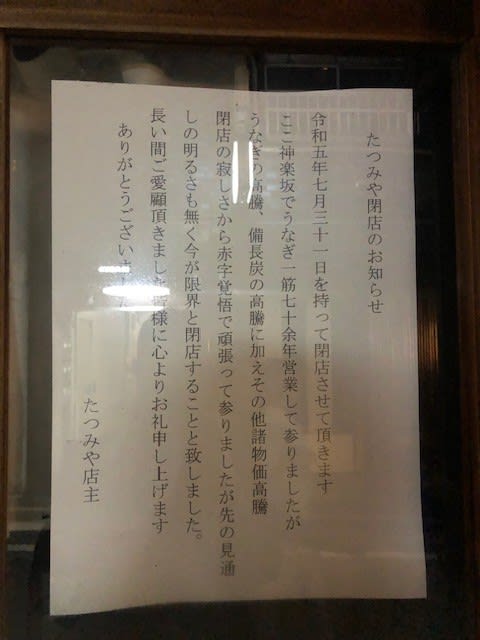 たつみや閉店のお知らせ
令和五年七月三十一日を持って閉店させて頂きます
ここ神楽坂でうなぎ一筋七十余年営業して参りましたが
うなぎの高騰、備長炭の高騰に加えその他諸物価高騰
閉店の寂しさから赤字覚悟で頑張って参りましたが先の見通
しの明るさも無く今が限界と閉店することと致しました。
長い間ご愛顧頂きました皆様に心よりお礼申し上げます
ありがとうございました
たつみや店主